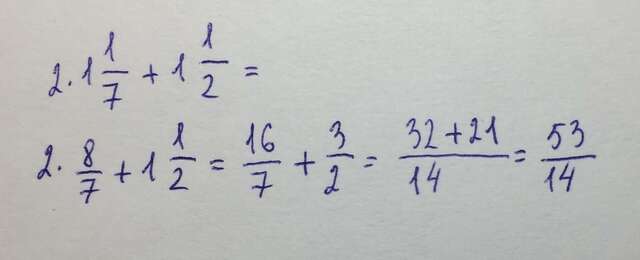 2. 1 1/7 + 1 1/2 =
2. 8/7 + 1 1/2 = 16/7 + 3/2 = 32+21/14 = 53/14